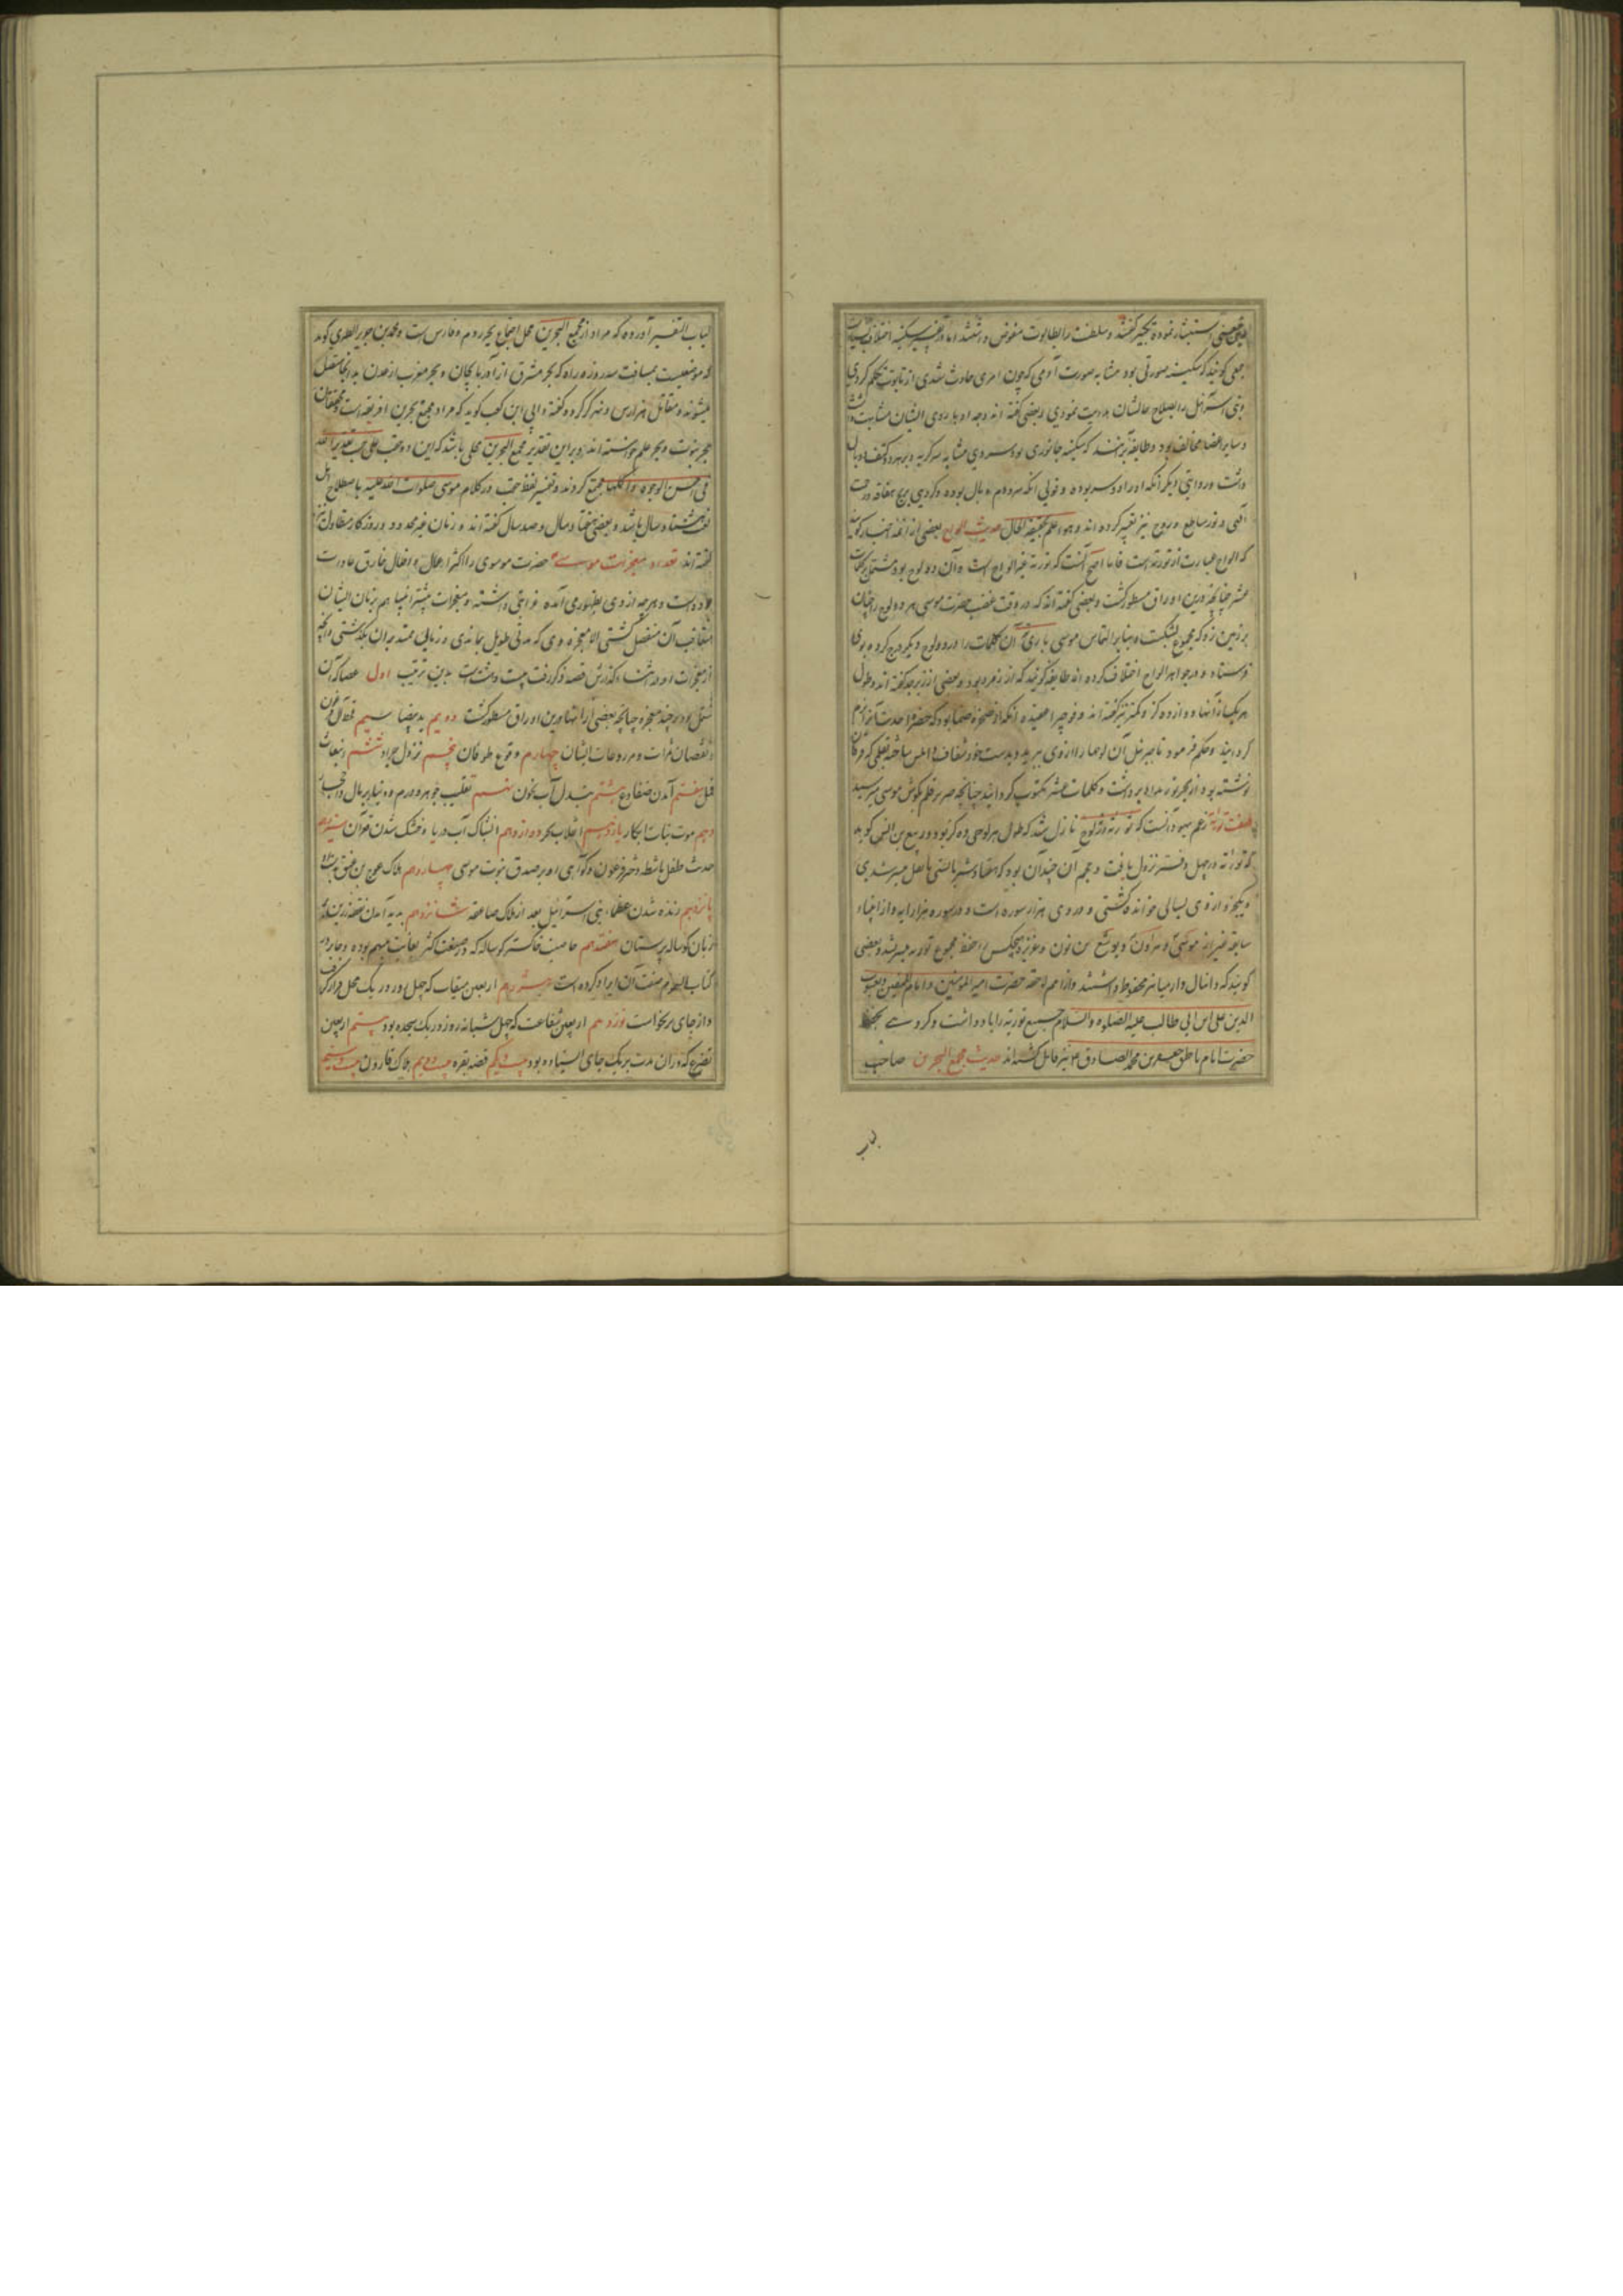 جمعی گویند که سکینه صورتی بود مشابه صورت آدمی که چون امری حادث شدی از تابوت تکلم کردی
و بنی اسرائیل را بصلاح حالشان هدایت نمودی و بعضی گفته اند وجه او با روی انسان مشابهت داشت
و سایر اعضا مخالف بود و طایفه برآنند که سکینه جانوری بود سر وی مشابه سر گربه و بر هر دو کتف او بال
داشت و روایتی دیگر آنکه او را دو سر بوده و قولی آنکه سر و دم و بال بوده و گروهی بریح هفافه و رحمت
الهی و نور ساطع و روح نیز تعبیر کرده اند و هو اعلم بحقیقة الحال حدیث الواح بعضی از ائمه اخبار گویند
که الواح عبارت از توریة است فاما اصح آنست که توریة غیر الواح است و آن دو لوح بود مشتمل بر کلمات
عشر چنانچه درین اوراق مسطور گشت و بعضی گفته اند که در وقت غضب حضرت موسی هر دو لوح را چنان
بر زمین زد که مجموع بشکست و بنابر التماس موسی باری آن کلمات را در دو لوح دیگر درج کرده بوی
فرستاد و در جواهر الواح اختلاف کرده اند طایفه گویند که از زمرد بود و بعضی از زبرجد گفته اند و طول
هر یک از آنها دوازده گز و کمتر نیز گفته اند
گردانید و حکم فرمود تا جبرئیل آن لوحها را از وی ببرید و بدست خود شفاف و املس ساخته بقلمی که
نوشته بود از بحر نور مداد برداشت و کلمات عشر مکتوب گردانید چنانچه صریر قلم بگوش موسی میرسید
صفت توراة زعم یهود آنست که توریة در لوح نازل شد که طول هر لوحی ده گز بود و ربیع بن انس گوید
که توراة در چهل دفتر نزول یافت و حجم آن چندان بود که هفتاد شتر بایستی تا نقل میسر شدی
و یکجزو از وی بسالی خوانده گشتی و در وی هزار سوره است و در هر سوره هزار آیه و از انبیاء
سابقه غیر از موسی و هرون و یوشع بن نون و عزیر هیچکس را حفظ مجموع توریه میسر نشد و بعضی
گویند که دانیال و ارمیا نیز محفوظ داشتند و از امم لاحقه حضرت امیر المؤمنین و امام المتقین و یعسوب
الدین علی ابن ابی طالب علیه الصلوة والسلام جمیع توریة را یاد داشت و گروهی بحفظ
حضرت امام ناطق جعفر بن محمد الصادق نیز قایل گشته اند حدیث مجمع البحرین صاحب
لباب
لباب التفسیر آورده که مراد از مجمع البحرین محل اجتماع بحر روم و فارس است و محمد بن جریر الطبری گوید
که موضعیست بمسافت صد روزه راه که بحر مشرق از آذربایجان و بحر مغرب از عدن بدانجا متصل
میشوند و مقاتل نهر ارس و نهر کر گفته و ابی ابن کعب گوید که مراد از مجمع بحرین افریقیه است
بحر نبوت و بحر علم دانسته اند و بر این تقدیر مجمع البحرین محلی باشد که این دو
فی احسن الوجوه و اکملها جمع کردند و تفسیر لفظ حقب در کلام موسی صلوات الله علیه باصطلاح اهل
هشتاد سال باشد و بعضی هفتاد سال و صد سال گفته اند و زمان غیر محدود و روزگار متطاول نیز
گفته اند تعداد معجزات موسی حضرت موسی را اکثر احوال و افعال خارق عادت
بوده است و هر چه از وی بظهور می آمده غرابتی داشته و معجزات بیشتر انبیا هم بزمان ایشان
متعاقب آن منفصل گشتی الا معجزه وی که مدتی طویل بماندی و زمانی ممتد بر آن بگذشتی و آنچه
از معجزات او در اثنای گذارش قصه ذکر رفت بیست و هشت است بدین ترتیب اول عصا که آن
مشتمل بود بر چند معجزه چنانچه بعضی از آنها درین اوراق مسطور گشت دویم ید بیضا سیم قحط آل فرعون
و نقصان ثمرات و مزروعات ایشان چهارم وقوع طوفان پنجم نزول جراد ششم انبعاث
قمل هفتم آمدن ضفادع هشتم تبدل آب بخون نهم تقلیب جوهر و درم و دنانیر بمال و احجار
دهم موت بنات ابکار یازدهم انفلاق بحر دوازدهم انشقاق آب دریا و خشک شدن قعر آن سیزدهم
حدیث طفل ماشطه دختر فرعون و گواهی او بر صدق نبوت موسی چهاردهم هلاک عوج بن عنق
پانزدهم زنده شدن عظماء بنی اسرائیل بعد از هلاک صاعقه شانزدهم پدید آمدن نقطه زرین بر
زبان گوساله پرستان هفدهم خاصیت خاکستر گوساله که در صنعت اکثر بغایت مبهم بوده و جابر در
کتاب السموم صفت آن ایراد کرده است هیژدهم اربعین میقات که چهل روز در یک محل قرار گرفت
و از جای برنخواست نوزدهم اربعین شفاعت که چهل شبانه روز در یک سجده بود بیستم اربعین
تضرع که در آن مدت بریک جای ایستاده بود بیست و یکم قصه بقره بیست و دویم هلاک قارون بیست و سیم